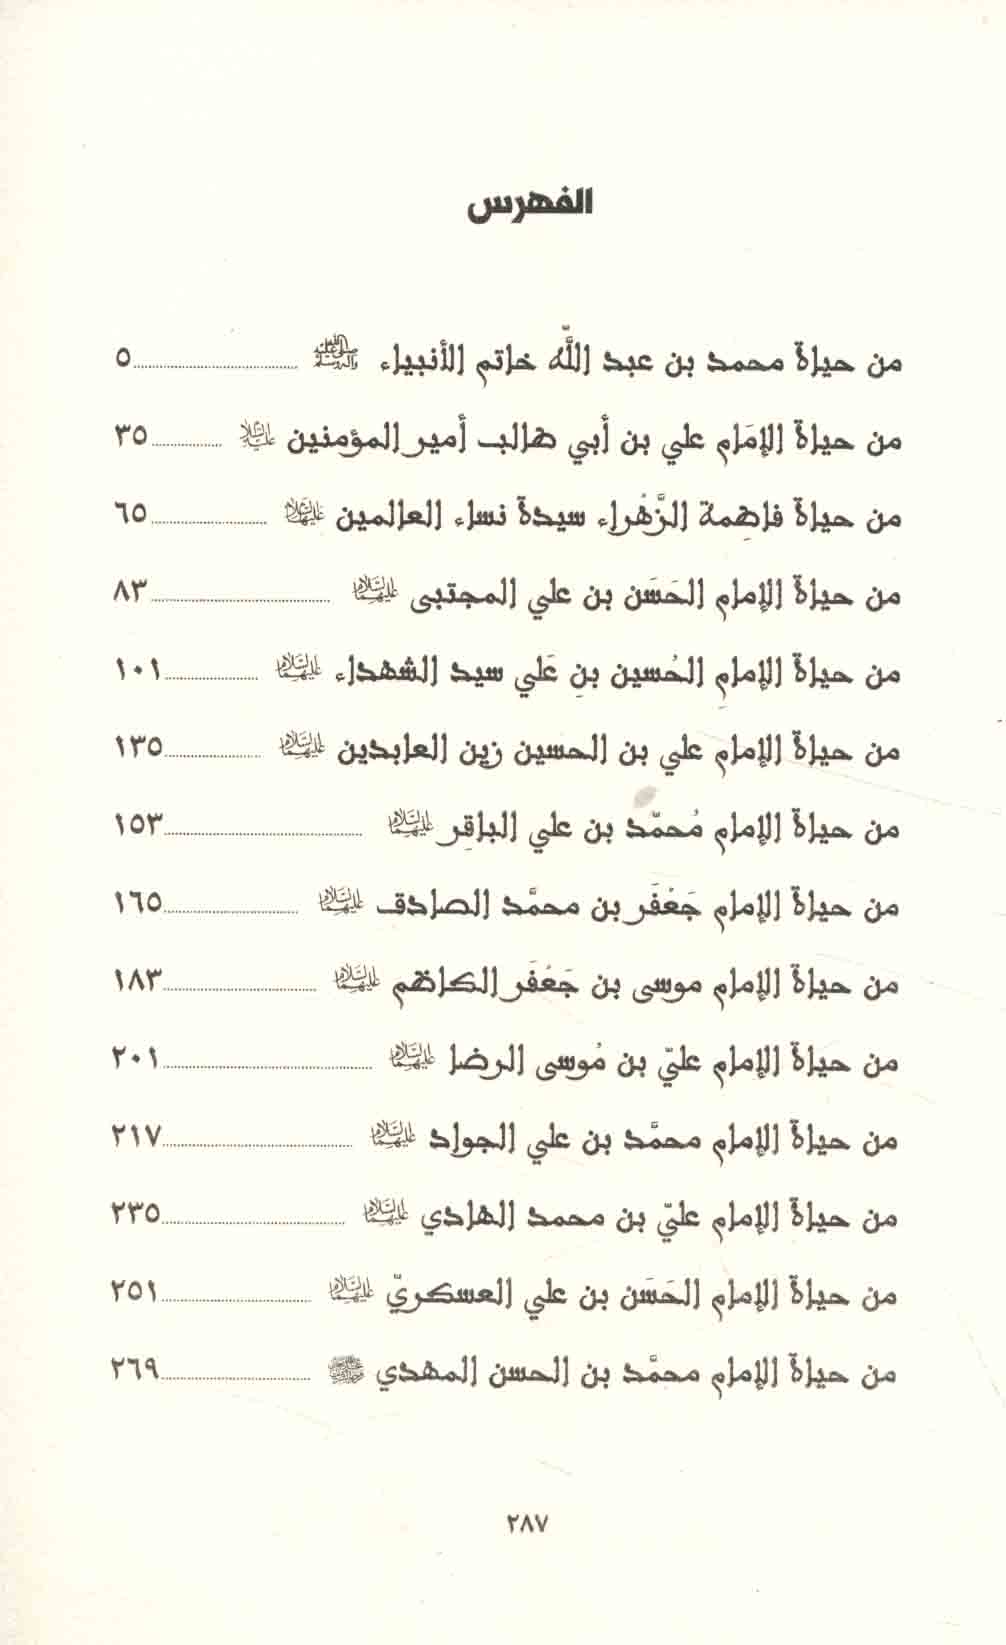 الفهرس
من حياة محمد بن عبد اللَّه خاتم الأنبياء ﷺ ..... ٥
من حياة الإمَام علي بن أبي طالب أمير المؤمنين عليه السلام ..... ٣٥
من حياة فاطِمة الزَّهْراء سيدة نساء العالمين عليها السلام ..... ٦٥
من حياة الإمام الحَسَن بن علي المجتبى عليهما السلام ..... ٨٣
من حياة الإمامِ الحُسين بنِ عَلي سيد الشهداء عليهما السلام ..... ١٠١
من حياة الإمام علي بن الحسين زين العابدين عليهما السلام ..... ١٣٥
من حياة الإمام مُحمّد بن علي الباقِر عليهما السلام ..... ١٥٣
من حياة الإمام جَعْفَر بن محمَّد الصادق عليهما السلام ..... ١٦٥
من حياة الإمام موسى بن جَعْفَر الكاظم عليهما السلام ..... ١٨٣
من حياة الإمام عليّ بن مُوسى الرضا عليهما السلام ..... ٢٠١
من حياة الإمام محمَّد بن علي الجواد عليهما السلام ..... ٢١٧
من حياة الإمام عليّ بن محمد الهادي عليهما السلام ..... ٢٣٥
من حياة الإمام الحَسَن بن علي العسكريّ عليهما السلام ..... ٢٥١
من حياة الإمام محمَّد بن الحسن المهدي ..... ٢٦٩
٢٨٧